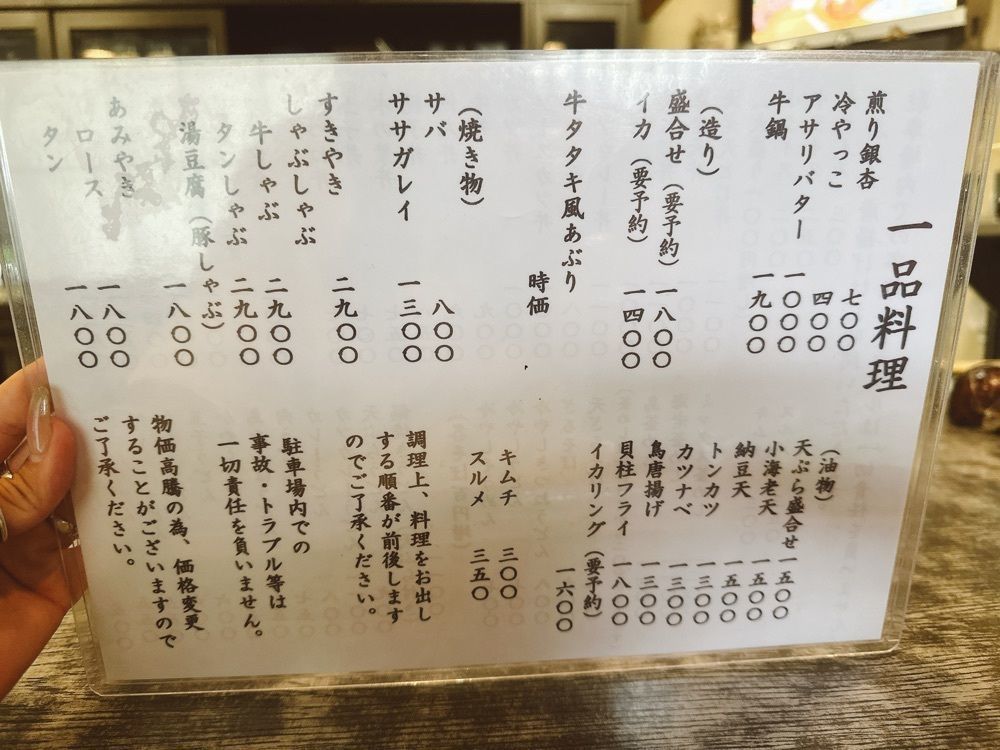 一品料理
煎り銀杏 七〇〇
冷やっこ 四〇〇
アサリバター 一〇〇〇
牛鍋 一九〇〇
（造り）
盛合せ（要予約） 一八〇〇
イカ（要予約） 一四〇〇
牛タタキ風あぶり 時価
（焼き物）
サバ 八〇〇
ササガレイ 一三〇〇
すきやき 二九〇〇
しゃぶしゃぶ
牛しゃぶ 二九〇〇
タンしゃぶ 二九〇〇
湯豆腐（豚しゃぶ） 一八〇〇
あみやき
ロース 一八〇〇
タン 一八〇〇
（油物）
天ぷら盛合せ 一五〇〇
小海老天 一五〇〇
納豆天 一五〇〇
トンカツ 一三〇〇
カツナベ 一三〇〇
鳥唐揚げ 一三〇〇
貝柱フライ 一八〇〇
イカリング（要予約） 一六〇〇
キムチ 三〇〇
スルメ 三五〇
調理上、料理をお出し
する順番が前後します
のでご了承ください。
駐車場内での
事故・トラブル等は
一切責任を負いません。
物価高騰の為、価格変更
することがございますので
ご了承ください。